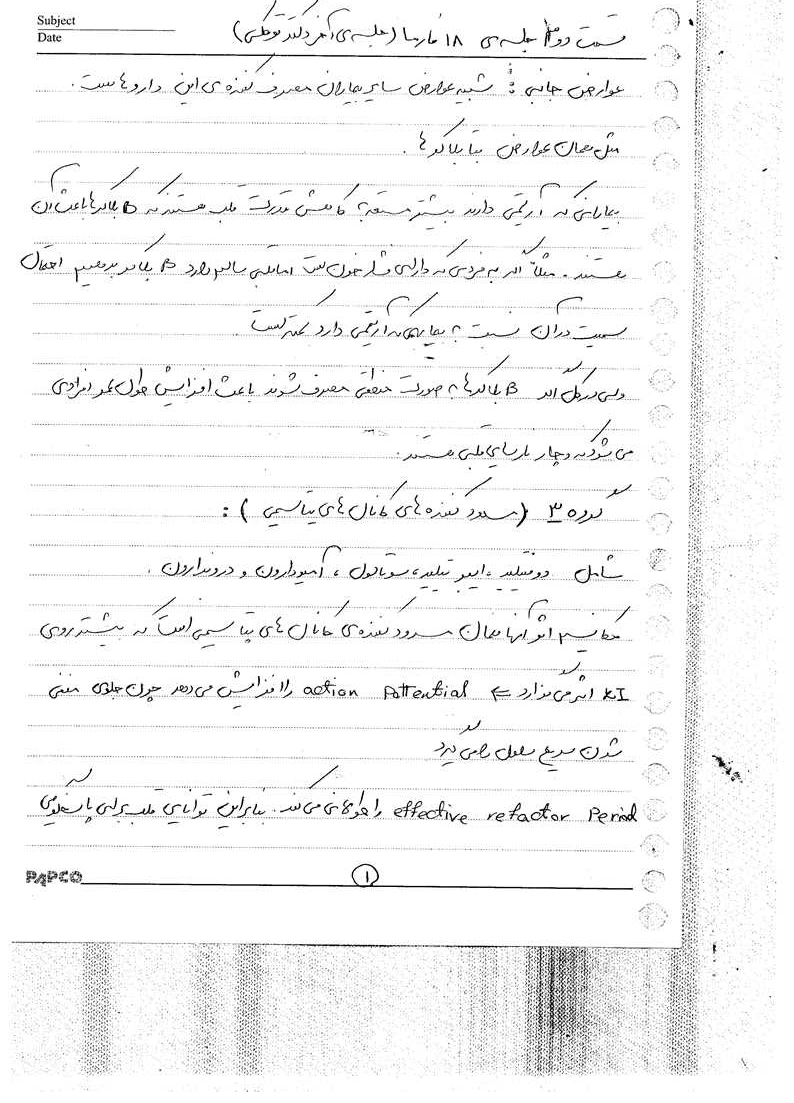 Subject
Date
قسمت دوم جلسه ی ۱۸ فارما (جلسه ی آخر دکتر توکلی)
عوارض جانبی : شبیه عوارض سایر بیماران مصرف کننده ی این داروهاست.
مثل همان عوارض بتابلاکرها.
بیمارانی که آریتمی دارند بیشتر مستعد کاهش قدرت قلب هستند که B بلاکرها باعث آن
هستند. مثلاً اگر به فردی که دارای فشار خون است اما قلبی سالم دارد B بلاکر بدهیم احتمال
سمیت در آن نسبت به بیماری که آریتمی دارد کمتر است.
ولی در کل اگر B بلاکرها به صورت منطقی مصرف شوند باعث افزایش طول عمر افرادی
می شود که دچار نارسایی قلبی هستند.
گروه ۳ (مسدود کننده های کانال های پتاسیمی) :
شامل دوفتیلید، ایبوتیلید، سوتالول، آمیودارون و درونیدارون.
مکانیسم اثر آنها همان مسدود کننده ی کانال های پتاسیمی است که بیشتر روی
KI اثر می گذارد ⇐ action Pottential را افزایش می دهد چون جلوی منفی
شدن سریع سلول را می گیرد
effective refactor Period را طولانی می کند. بنابراین توانایی قلب برای پاسخگویی
PAPCO
۱